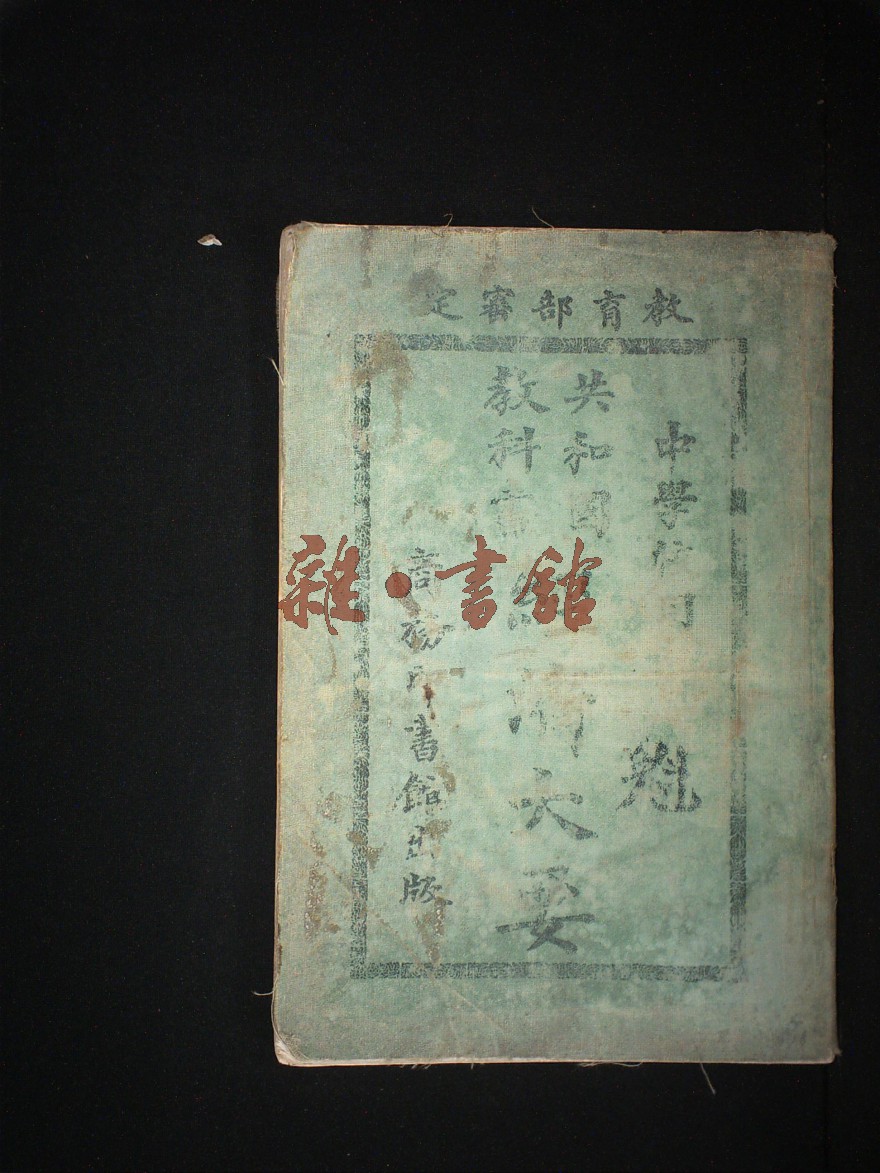 教育部審定
中學校用
魁
共和國
教科書
經濟大要
商務印書館出版
雜·書館